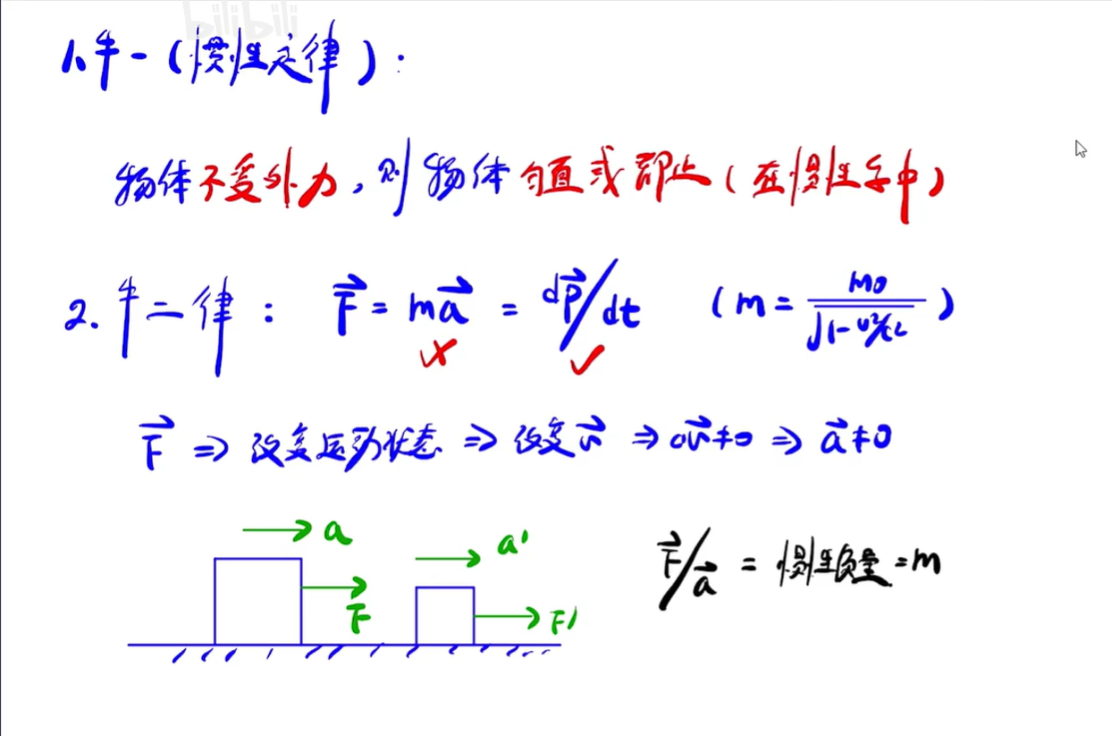 bilibili
1.牛一(惯性定律):
物体不受外力,则物体匀直或静止(在惯性系中)
2.牛二律: F⃗ = ma⃗ = dp⃗/dt (m = m0/√(1-v²/c²))
F⃗ ⇒ 改变运动状态 ⇒ 改变v⃗ ⇒ Δv⃗≠0 ⇒ a⃗≠0
a a'
F⃗/a⃗ = 惯性质量 = m
F F'